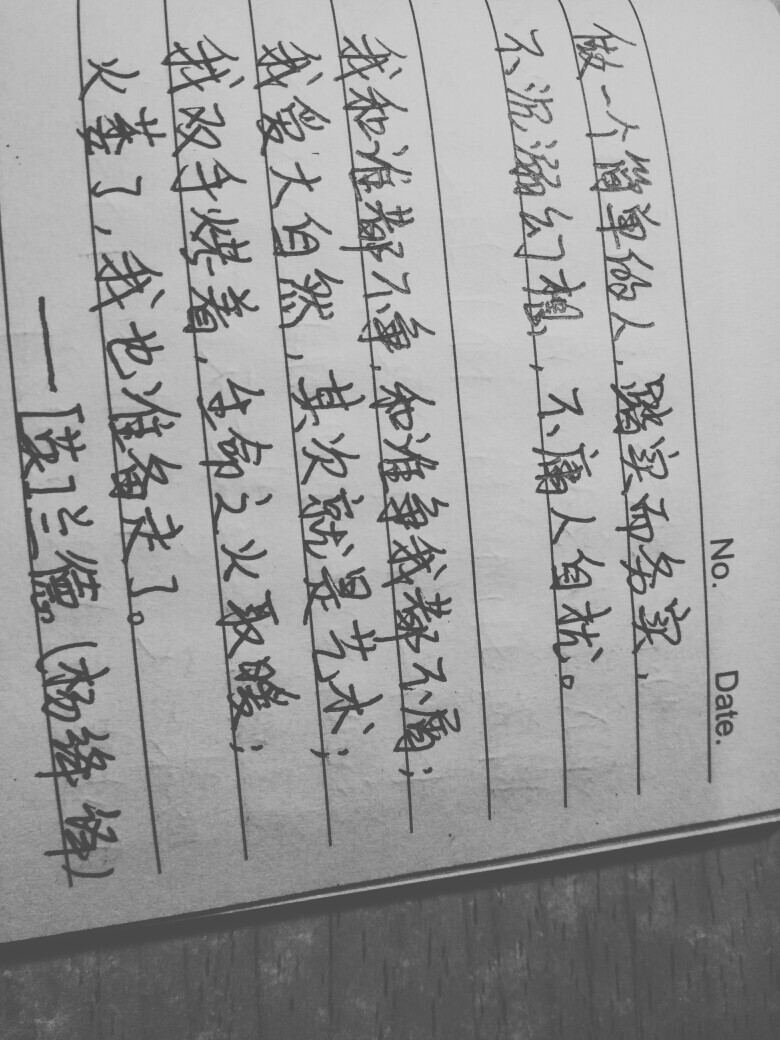 No.    Date.
做一个简单的人，踏实而务实，
不沉溺幻想，不庸人自扰。
我和谁都不争，和谁争我都不屑；
我爱大自然，其次就是艺术；
我双手烤着，生命之火取暖；
火萎了，我也准备走了。
——[英]兰德（杨绛 译）